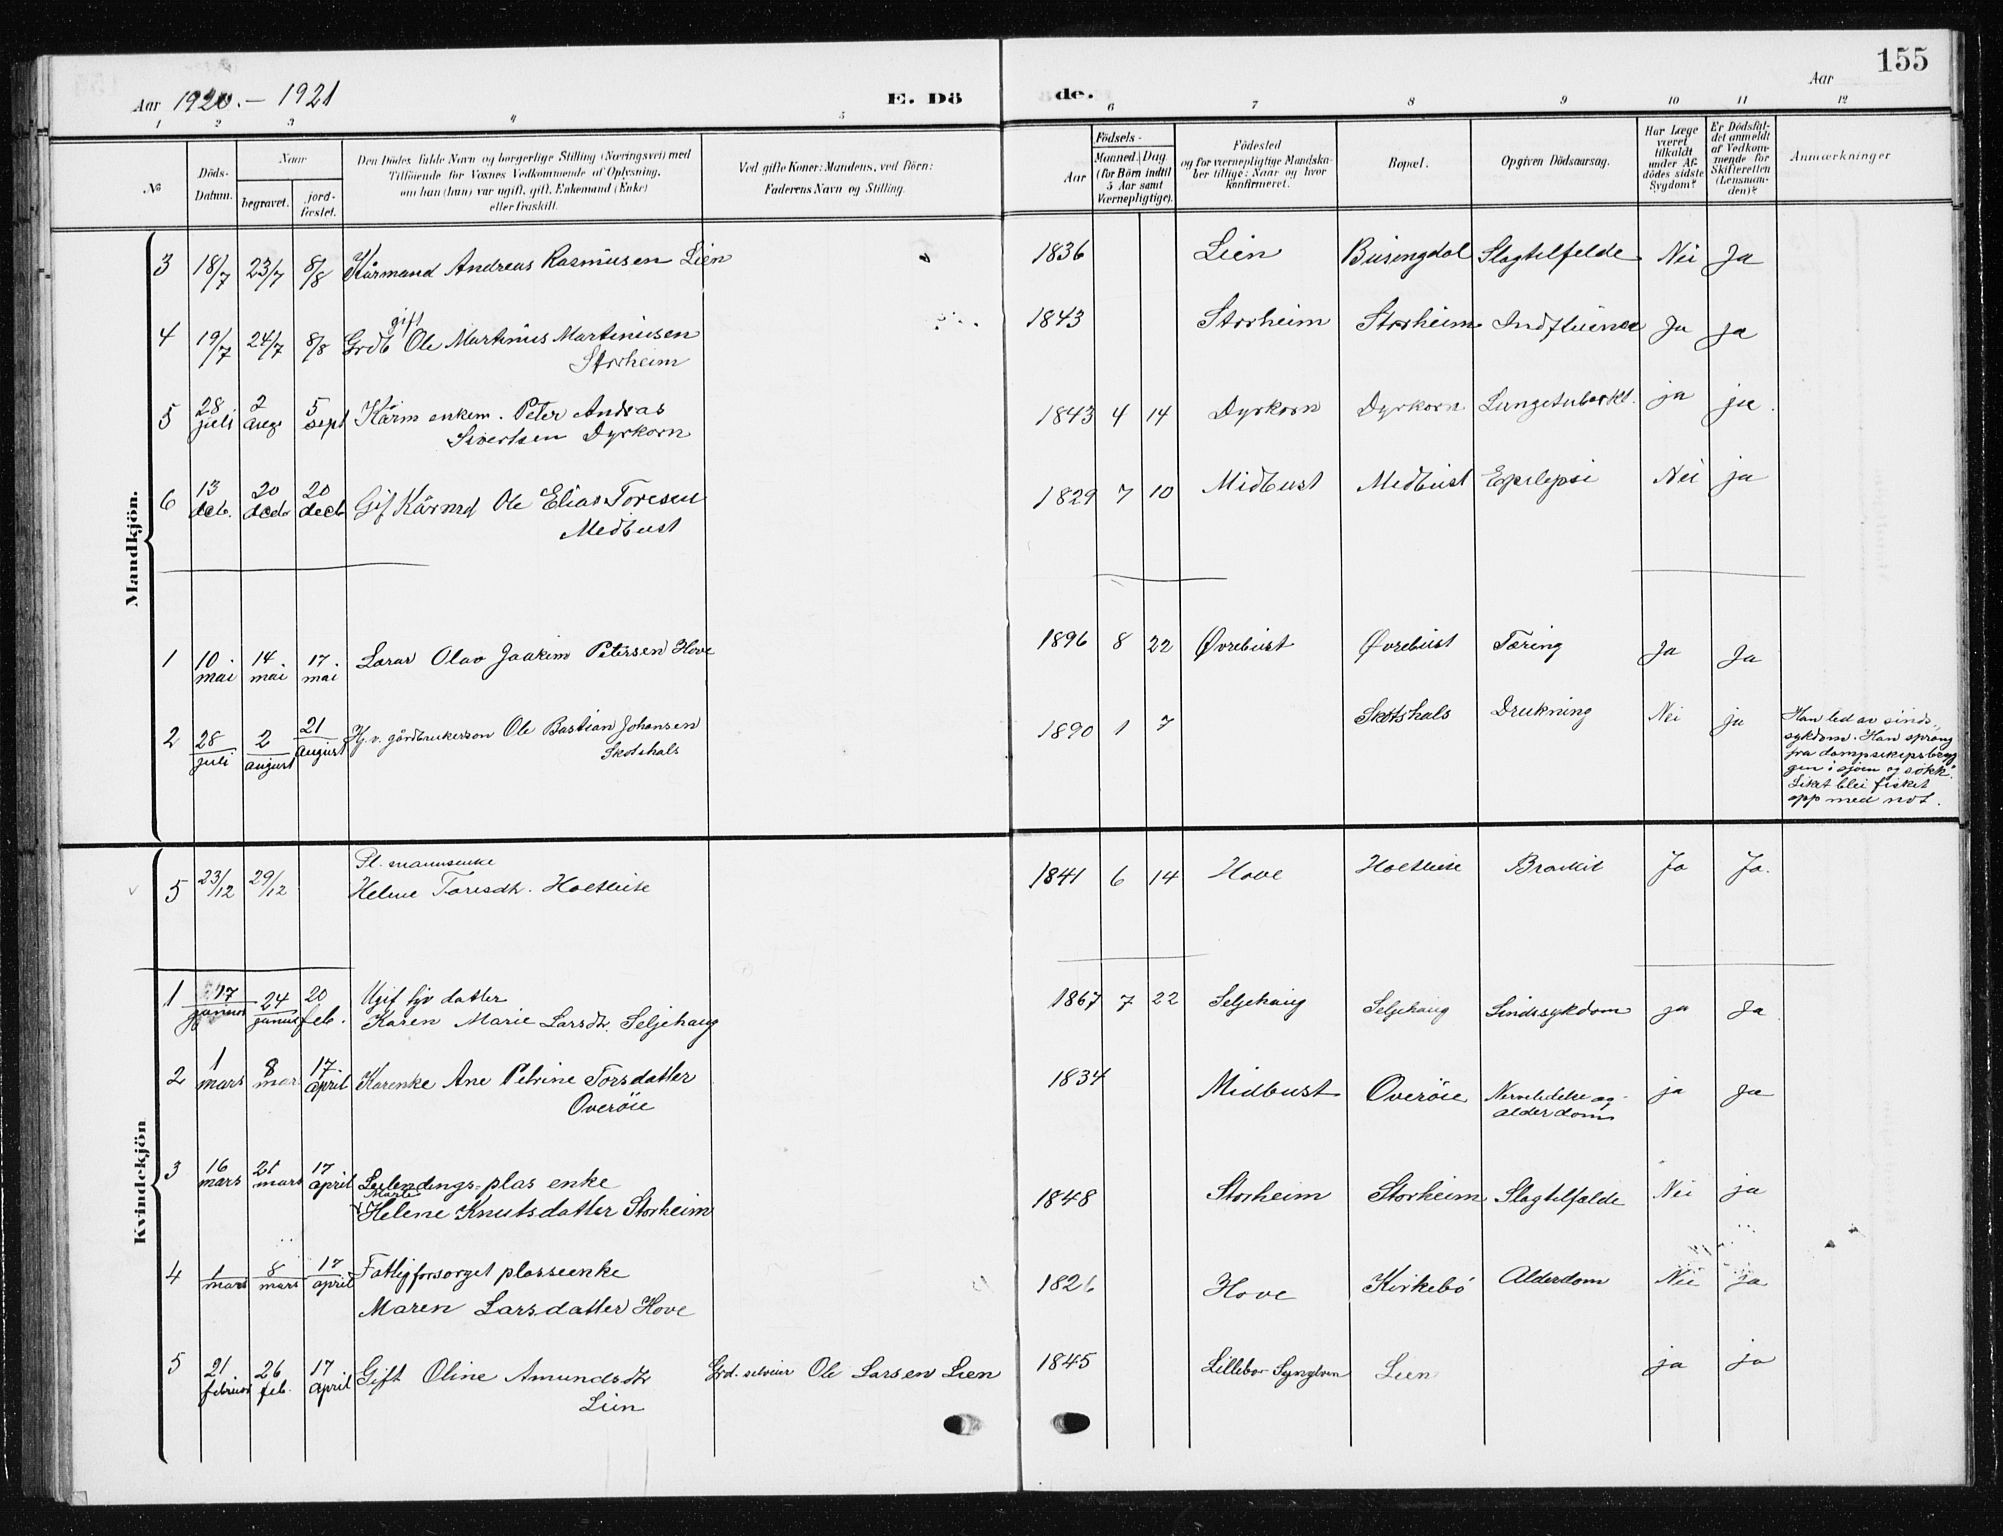 155
Aar 1920. – 1921
E. Dö
de.
Aar
1 2 3 4 5 6 7 8 9 10 11 12
№
Döds-
Datum.
Naar
begravet.
jord-
fæstet.
Den Dödes fulde Navn og borgerlige Stilling (Næringsvei) med
Tilföiende for Voxnes Vedkommende af Oplysning,
om han (hun) var ugift, gift, Enkemand (Enke)
eller fraskilt.
Ved gifte Koner: Mandens, ved Börn:
Faderens Navn og Stilling.
Födsels-
Aar
Maaned. Dag
(for Börn indtil
5 Aar samt
Værnepligtige).
Födested
og for værnepligtige Mandska-
ber tillige: Naar og hvor
konfirmeret.
Bopæl.
Opgiven Dödsaarsag.
Har Læge
været
tilkaldt
under Af-
dödes sidste
Sygdom?
Er Dödsfal-
det anmeldt
af Vedkom-
mende for
Skifteretten
(Lensman-
den)?
Anmærkninger
Mandkjön.
3 18/7 23/7 8/8 Kårmand Andreas Rasmusen Lien 1836 Lien Busengdal Slagtilfelde Nei Ja
gift
4 19/7 24/7 8/8 Grdb Ole Martinus Martinusen 1843 Storheim Storheim Indfluensa Ja ja
Storheim
5 28 juli 2 aug 5 sept Kårm enkem. Peter Andras 1843 4 14 Dyrkorn Dyrkorn Lungetuberkl. ja ja.
Sivertsen Dyrkorn
6 13 deb. 20 decbr 20 decb Gif Kårmd Ole Elias Toresen 1829 7 10 Midbust Medbust Epilepsi Nei ja
Medbust
1 10. mai 14. mai 17. mai Lærar Olav Joakim Petersen Hove 1896 8 22 Øvrebust Øvrebust Tæring Ja Ja
2 28 juli 2 august 21 august Hj. v. gårdbrukerson Ole Bastian Johansen 1890 1 7 Skotshals Drukning Nei ja
Skotshals
Han led av sinds-
sykdom. Han sprang
fra dampskipsbryg-
gen i sjøen og søkk.
Liket blei fisket
opp med not.
Kvindekjön
Pl. mannsenke
5 23/12 29/12 Helene Toresdtr. Holsteite 1841 6 14 Hove Ja Ja.
Ugif hjv datter
1 17 januar 24 januar 20 feb. Karen Marie Larsdtr. Seljehaug 1867 7 22 Seljehaug Seljehaug Sindssykdom ja Ja
2 1 mars 8 mar 17 april Kårenke Ane Petrine Torsdatter 1834 Midbust Overöie Nervelidelse og ja ja
Overöie alderdom
3 16 mars 21 mars 17 april Leilendings-plas enke
Marte
Helene Knutsdatter Storheim 1848 Storheim Storheim Slagtilfælde Nei ja
4 1 mars 8 mars 17 april Fattigforsorget plasseenke
Maren Larsdatter Hove 1826 Hove Kirkebö Alderdom Nei ja
5 21 februar 26 feb. 17 april Gift Oline Amundsdtr Grd. selveier Ole Larsen Lien 1845 Lillebø Synylven Lien ja ja
Lien